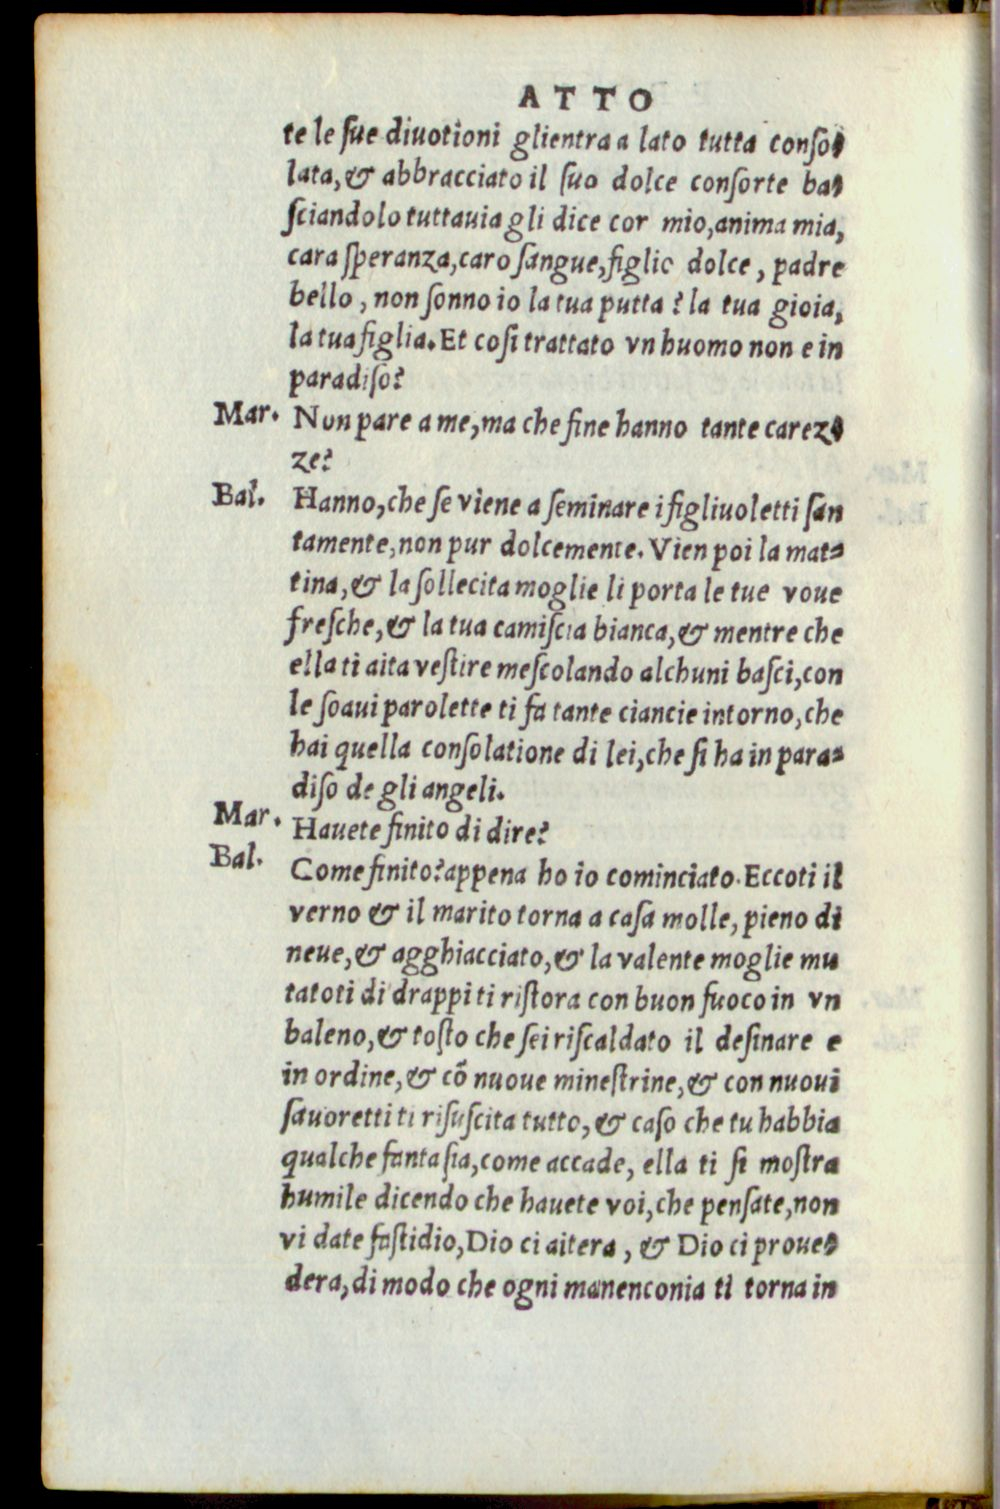 ATTO
te le ſue diuotioni glientra a lato tutta conſo-
lata, & abbracciato il ſuo dolce conſorte ba-
ſciandolo tuttauia gli dice cor mio, anima mia,
cara ſperanza, caro ſangue, figlio dolce, padre
bello, non ſonno io la tua putta? la tua gioia,
la tua figlia. Et coſi trattato vn huomo non e in
paradiſo?
Mar. Non pare a me, ma che fine hanno tante carez-
ze?
Bal. Hanno, che ſe viene a ſeminare i figliuoletti ſan
tamente, non pur dolcemente. Vien poi la mat-
tina, & la ſollecita moglie li porta le tue voue
freſche, & la tua camiſcia bianca, & mentre che
ella ti aita veſtire meſcolando alchuni baſci, con
le ſoaui parolette ti fa tante ciancie intorno, che
hai quella conſolatione di lei, che ſi ha in para-
diſo de gli angeli.
Mar. Hauete finito di dire?
Bal. Come finito? appena ho io cominciato. Eccoti il
verno & il marito torna a caſa molle, pieno di
neue, & agghiacciato, & la valente moglie mu
tatoti di drappi ti riſtora con buon fuoco in vn
baleno, & toſto che ſei riſcaldato il deſinare e
in ordine, & cõ nuoue mineſtrine, & con nuoui
ſauoretti ti riſuſcita tutto, & caſo che tu habbia
qualche fantaſia, come accade, ella ti ſi moſtra
humile dicendo che hauete voi, che penſate, non
vi date faſtidio, Dio ci aitera, & Dio ci proue-
dera, di modo che ogni manenconia ti torna in